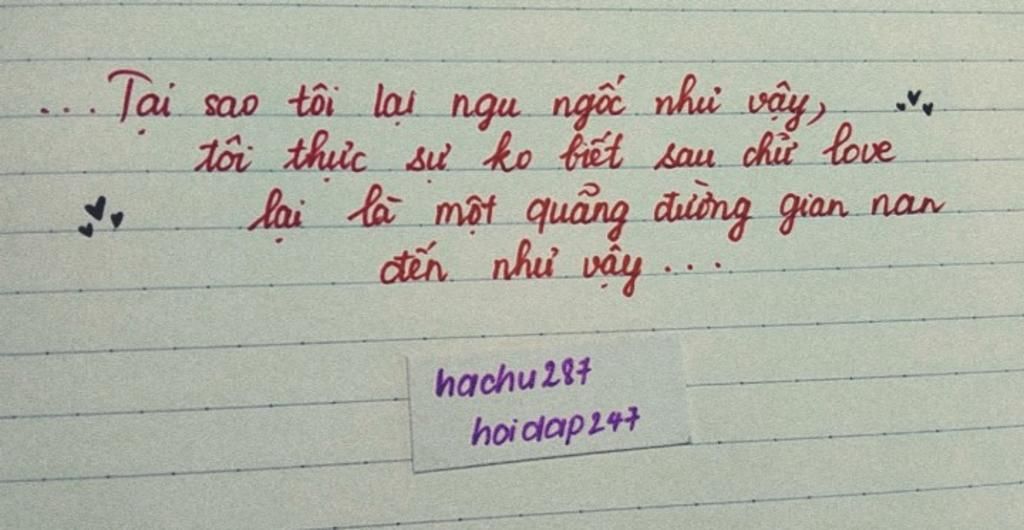 ....Tại sao tôi lại ngu ngốc như vậy,
tôi thực sự ko biết sau chữ love
lại là một quãng đường gian nan
đến như vậy...
hachu287
hoidap247